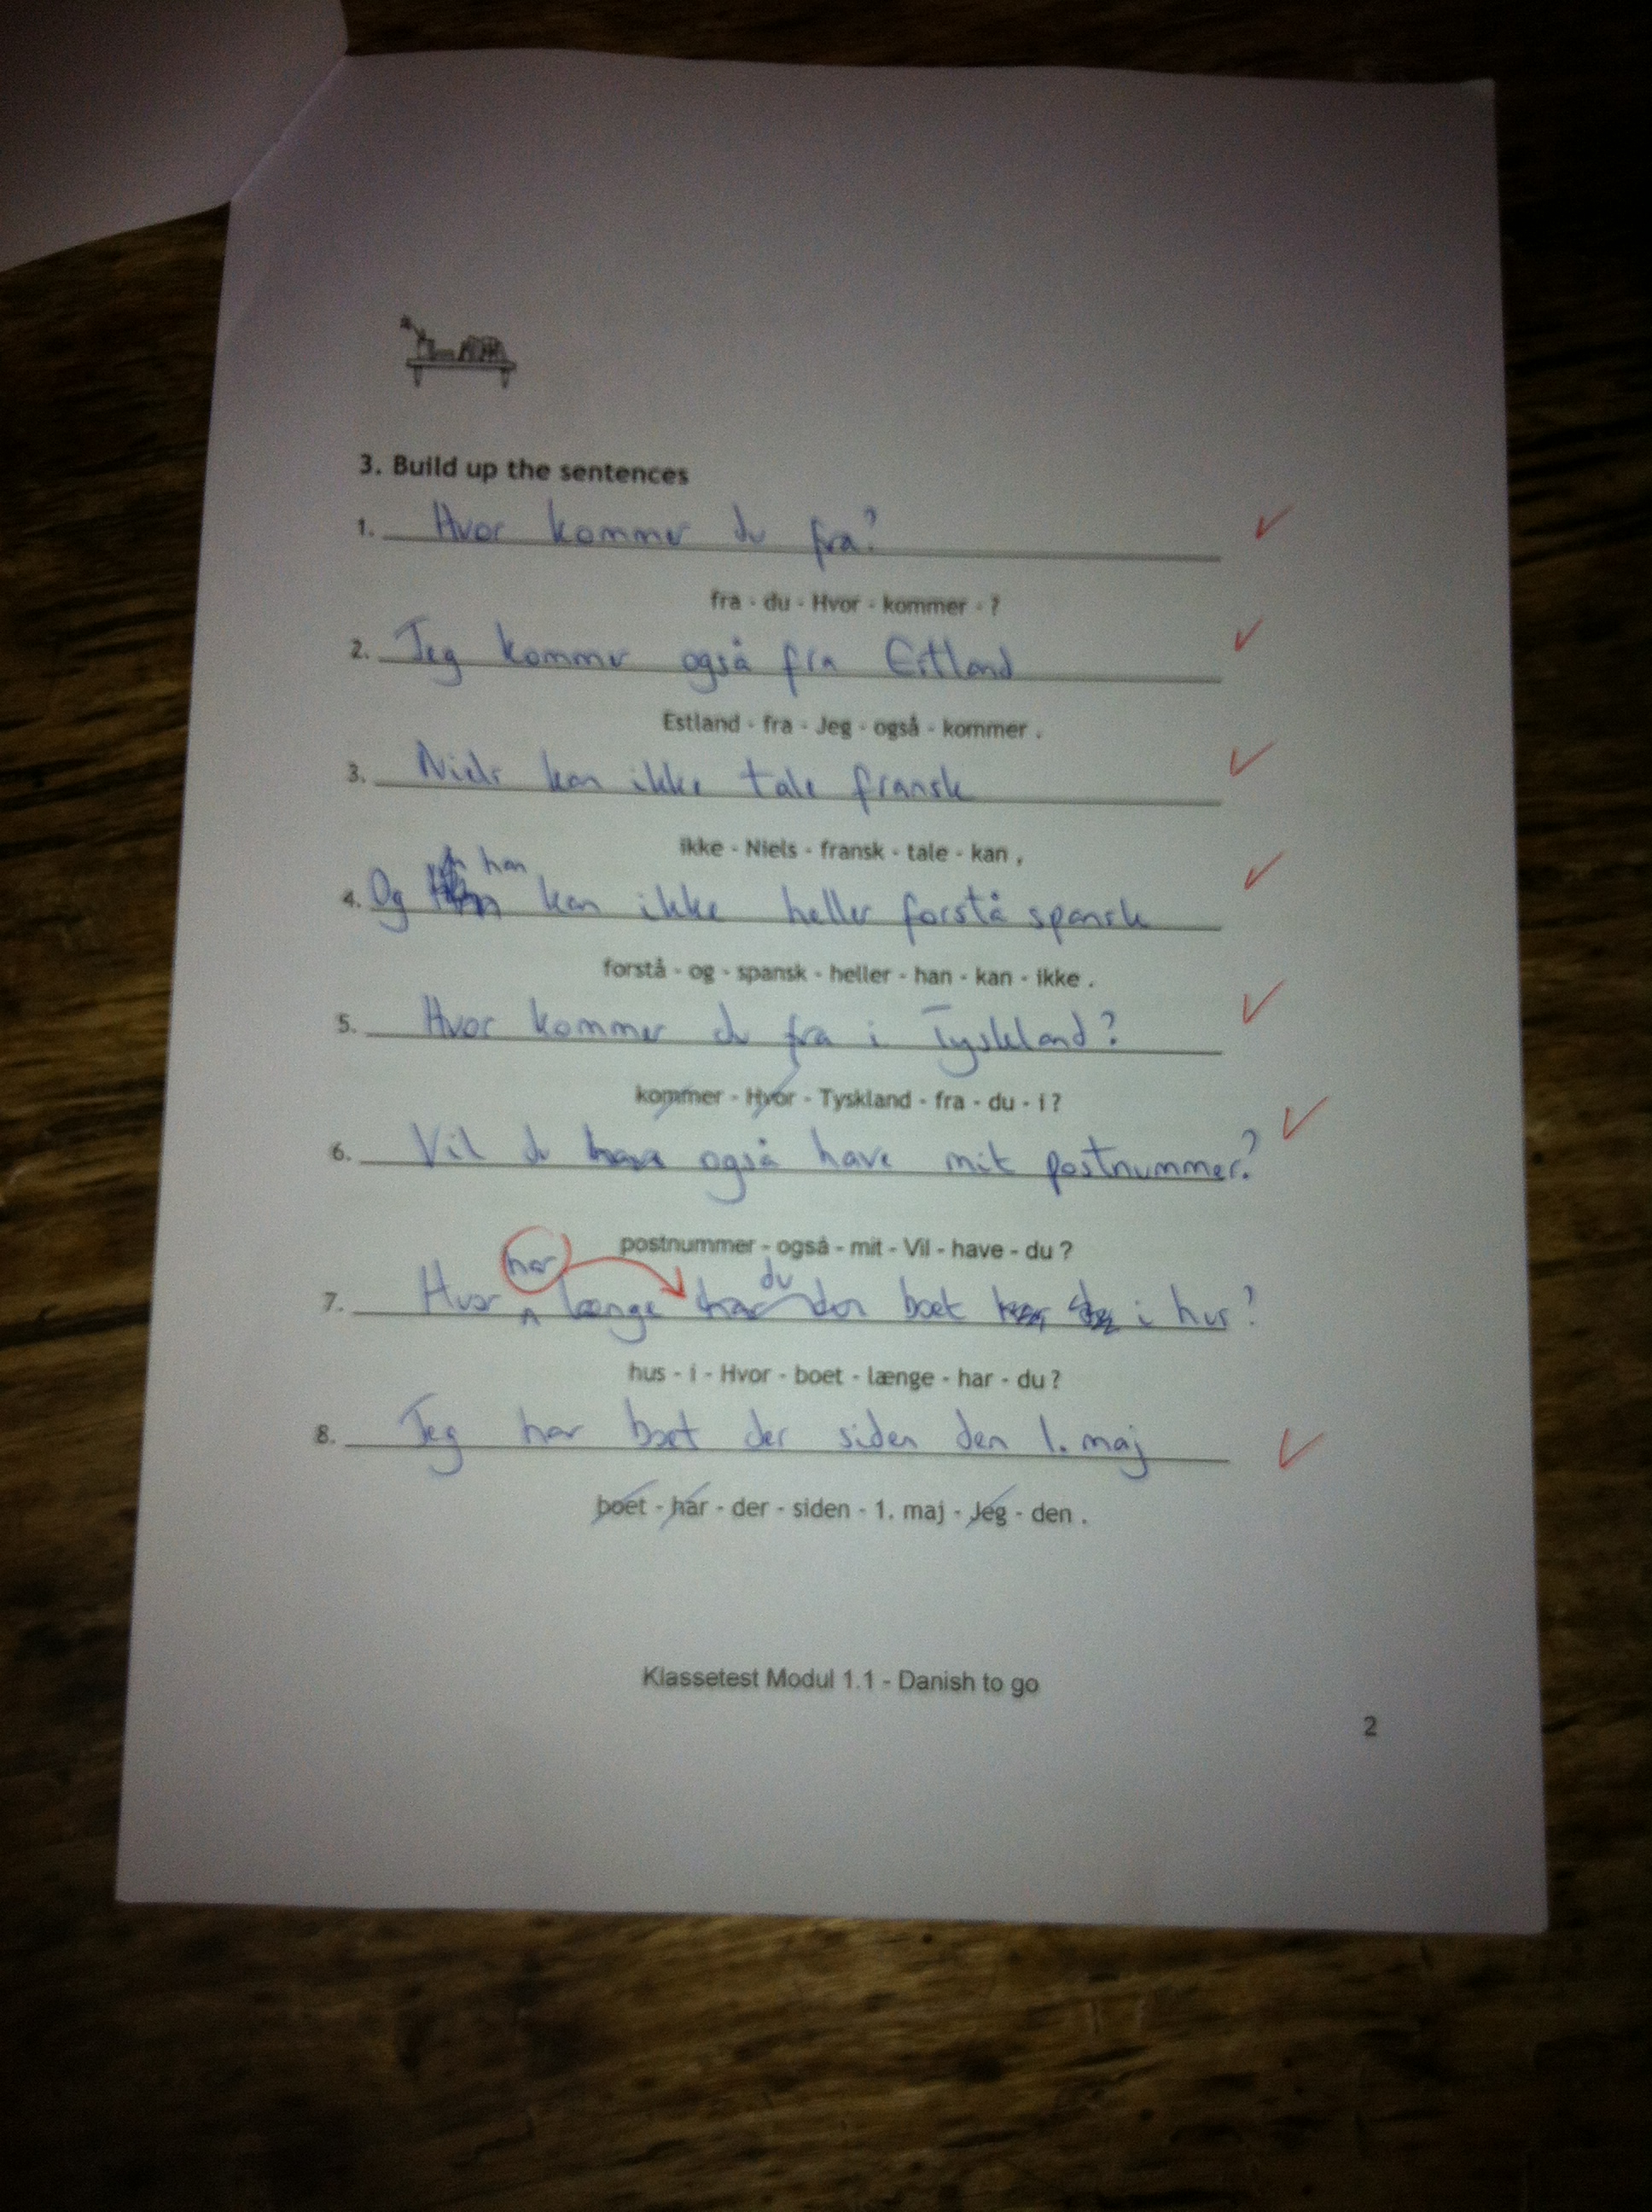 3. Build up the sentences
1. Hvor kommer du fra?
fra - du - Hvor - kommer - ?
2. Jeg kommer også fra Estland
Estland - fra - Jeg - også - kommer .
3. Niels kan ikke tale fransk
ikke - Niels - fransk - tale - kan ,
han
4. Og kan ikke heller forstå spansk
forstå - og - spansk - heller - han - kan - ikke .
5. Hvor kommer du fra i Tyskland?
kommer - Hvor - Tyskland - fra - du - i ?
6. Vil du også have mit postnummer?
postnummer - også - mit - Vil - have - du ?
har du
7. Hvor længe har boet i hus?
hus - i - Hvor - boet - længe - har - du ?
8. Jeg har boet der siden den 1. maj
boet - har - der - siden - 1. maj - Jeg - den .
Klassetest Modul 1.1 - Danish to go
2